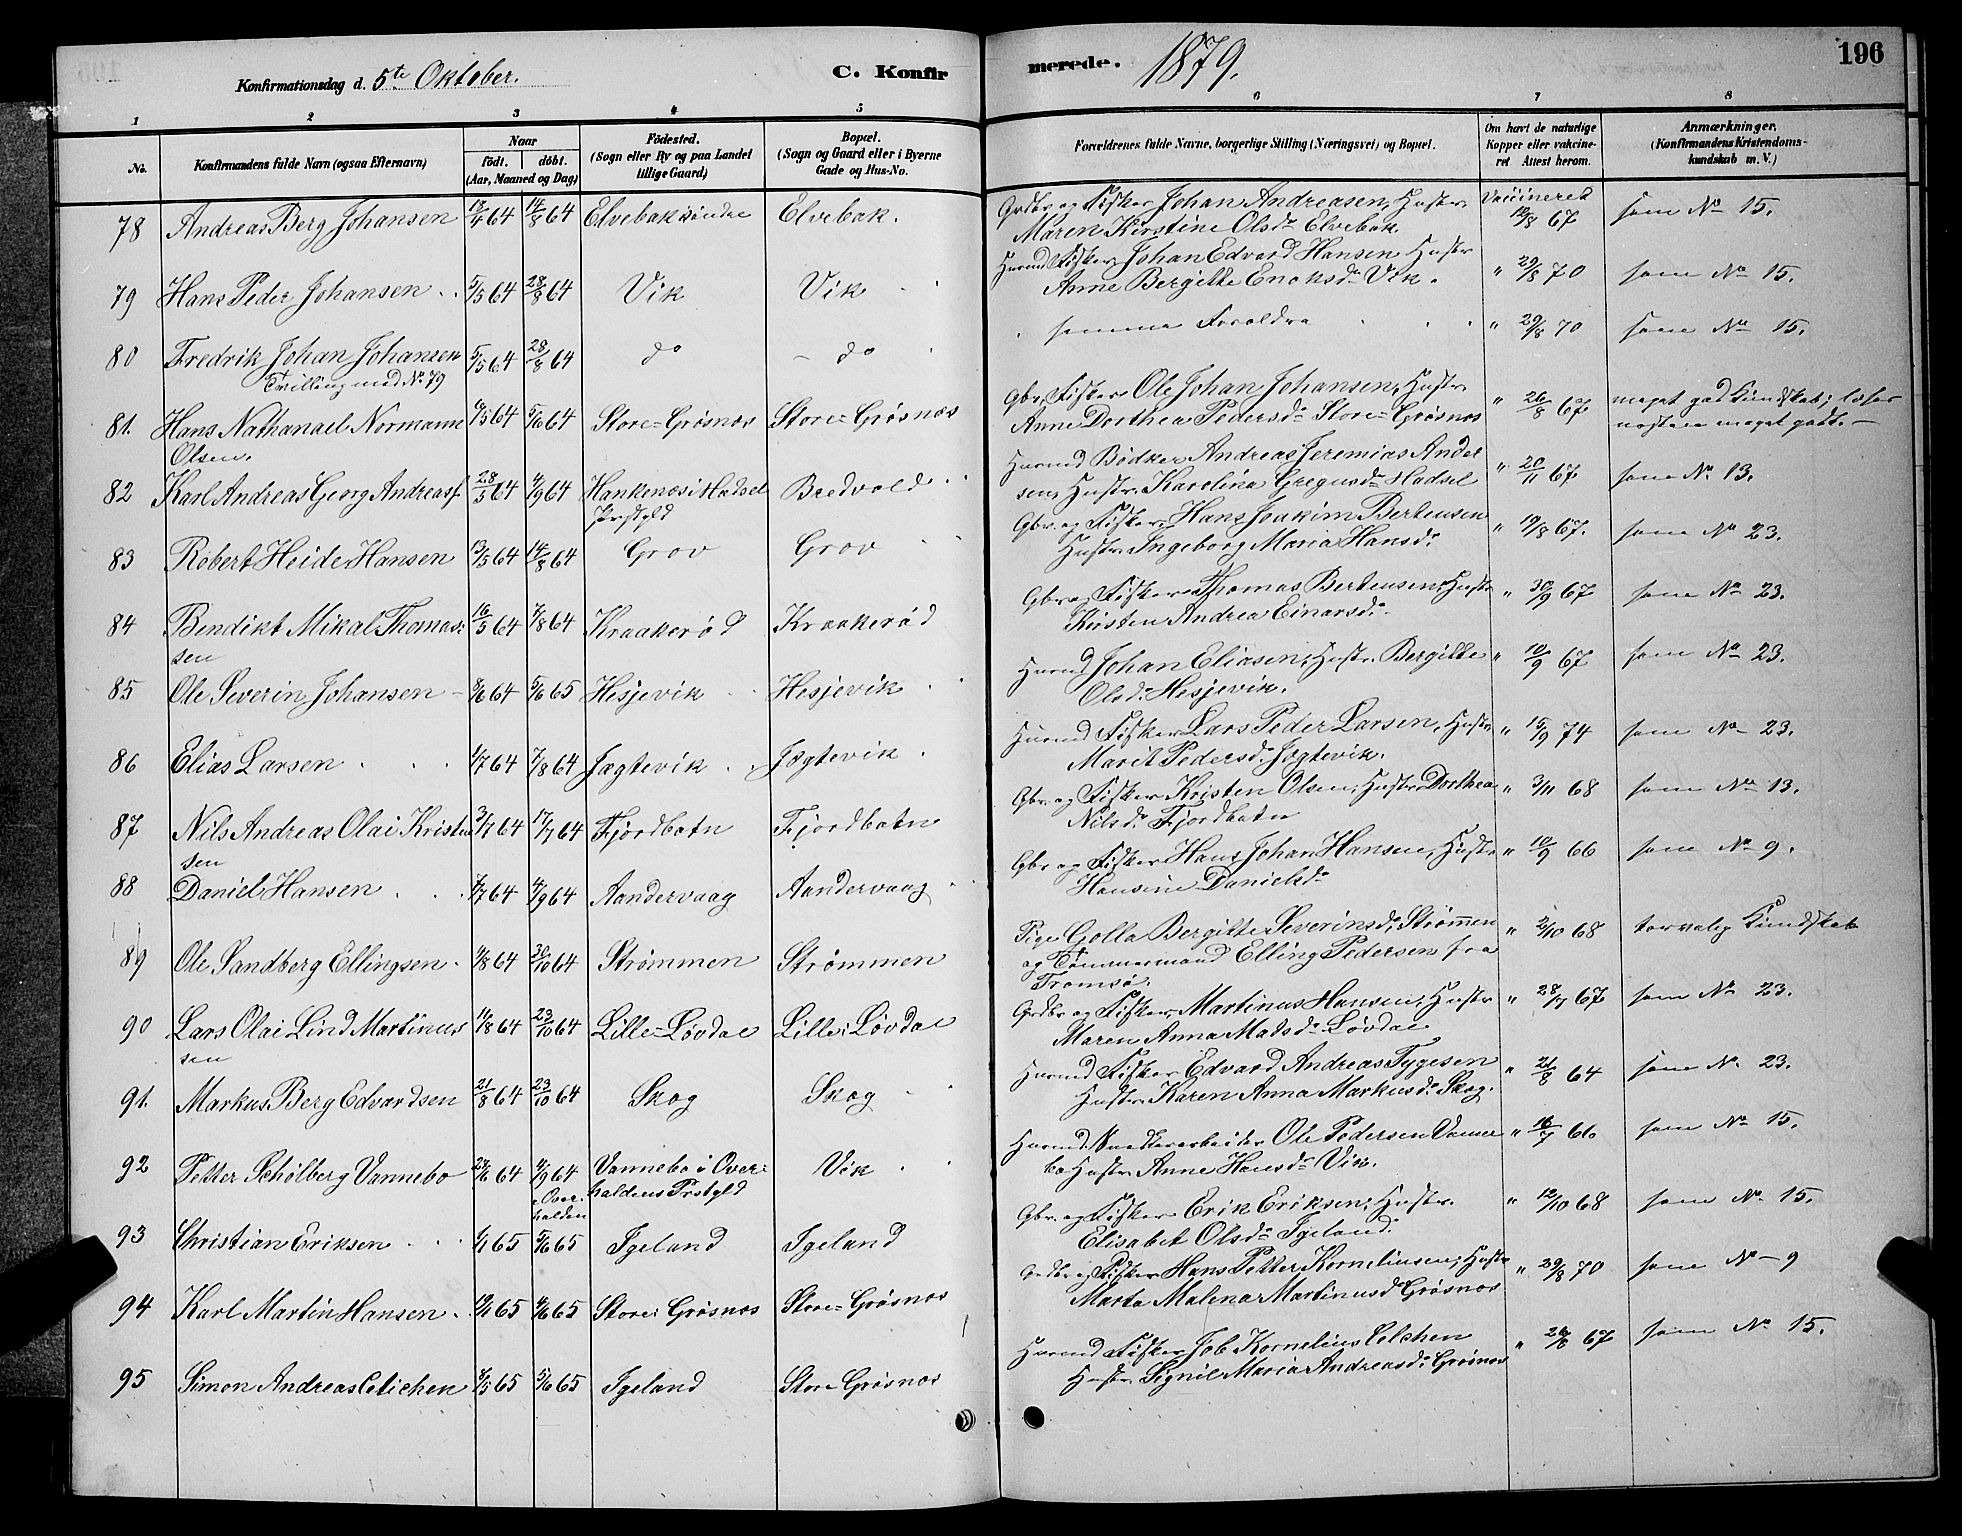 Konfirmationsdag d. 5te Oktober.
C. Konfir
merede. 1879.
196
1 2 3 4 5 6 7 8
No.
Konfirmandens fulde Navn (ogsaa Efternavn)
Naar
födt. döbt.
(Aar, Maaned og Dag)
Födested.
(Sogn eller By og paa Landet
tillige Gaard)
Bopæl.
(Sogn og Gaard eller i Byerne
Gade og Hus-No.
Forældrenes fulde Navne, borgerlige Stilling (Næringsvei) og Bopæl.
Om havt de naturlige
Kopper eller vakcine-
ret Attest herom.
Anmærkninger.
(Konfirmandens Kristendoms-
kundskab m. V.)
78 Andreas Berg Johansen 64 14/8 64 Elvebak søndre Elvebak.
Grdbr. og Fisker Johan Andreasen, Hustr. Vaccineret
Maren Kirstine Olsdr Elvebak 67 som No 15.
79 Hans Peder Johansen 5/5 64 28/8 64 Vik Vik
Husmd Fisker Johan Edvard Hansen Hustr
Anne Bergitte Enoksdr Vik. " 29/8 70 som No 15.
80 Fredrik Johan Johansen 5/5 64 28/8 64 do do
Tvilling med No 79
samme Forældre " 29/8 70 som No 15.
81. Hans Nathanael Normann 6/5 64 5/6 64 Store-Grøsnæs Store-Grøsnæs
Olsen.
Gbr, Fisker Ole Johan Johansen, Hustr.
Anne Dorthea Pedersdr Store-Grøsnæs " 26/8 67 meget god Kundskab; læser
næsten meget godt.
82 Karl Andreas Georg Andreass. 28/5 64 4/9 64 Hankenæs i Hadsel Bredvold
Prstgld
Husmd Bødker Andreas Jeremias Andrea
sen, Hustr. Karelina Gregusdr Hadsel " 20/11 67 som No 13.
83 Robert Heide Hansen 13/5 64 14/8 64 Grov Grov
Gbr. og Fisker Hans Joakim Berteusen
Hustr. Ingeborg Maria Hansdr " 19/8 67. som No 23.
84 Bendikt Mikal Thomas- 16/5 64 7/8 64 Kraakerød Kraakerød
sen
Gbr og Fisker Thomas Berteusen, Hustr
Kirsten Andrea Einarsdr " 30/9 67 som No 23.
85 Ole Severin Johansen 8/6 64 5/6 65 Hesjevik Hesjevik
Husmd Johan Eliasen, Hustr. Bergitte
Olsdr Hesjevik. " 10/9 67 som No 23.
86 Elias Larsen 64 7/8 64 Jægtevik Jægtevik
Husmd Fisker Lars Peder Larsen, Hustr.
Marit Pedersdr Jægtevik. " 15/9 74 som No 23.
87 Nils Andreas Olai Kristen 64 17/7 64 Fjordbotn Fjordbotn
sen
Gbr. og Fisker Kristen Olsen, Hustr. Dorthea
Nilsdr Fjordbotn " 3/11 68 som No 13.
88 Daniel Hansen 7/7 64 4/9 64 Aandervaag Aandervaag
Gbr og Fisker Hans Johan Hansen, Hustr
Hansine Danielsdr " 10/9 66 som No 9.
89 Ole Sandberg Ellingsen 64 30/10 64 Strømmen Strømmen
Pige Golla Bergitte Severinsdr Strømmen
og Tømmermand Elling Pedersen fra
Tromsø. " 2/10 68 torvelig Kundskab
90 Lars Olai Lind Martinus 11/8 64 23/10 64 Lille-Løvdal Lille-Løvdal
sen
Grdbr. og Fisker Martinus Hansen, Hustr
Maren Anna Madsdr Løvdal " 67 som No 23.
91. Markus Berg Edvardsen 21/8 64 23/10 64 Skog Skog
Husmd Fisker Edvard Andreas Tygesen
Hustr. Karen Anna Markusdr Skog. " 64 som No. 23.
92 Petter Schölberg Vannebo 64 4/9 64 Vannebo i Over- Vik
Over- haldens Prstgld
halden
Husmd. Snedkerarbeider Ole Pedersen Vanne
bo Hustr. Anne Hansdr Vik. " 66 som No 15.
93 Christian Eriksen 65 5/6 65 Igeland Igeland
Gbr. og Fisker Erik Eriksen, Hustr.
Elisabet Olsdr Igeland. " 12/10 68 som No. 15.
94 Karl Martin Hansen 65 65 Store-Grøsnæs Store-Grøsnæs
Grdbr og Fisker Hans Petter Korneliusen, Hustr
Marta Malena Martinusdr Grøsnæs " 29/8 70 som No 9
95 Simon Andreas Colichen 65 5/6 65 Igeland Store Grøsnæs
Husmd Fisker Job Kornelius Colchen
Hustr. Signil Maria Andreasdr Grøsnæs " 67 som No 15.